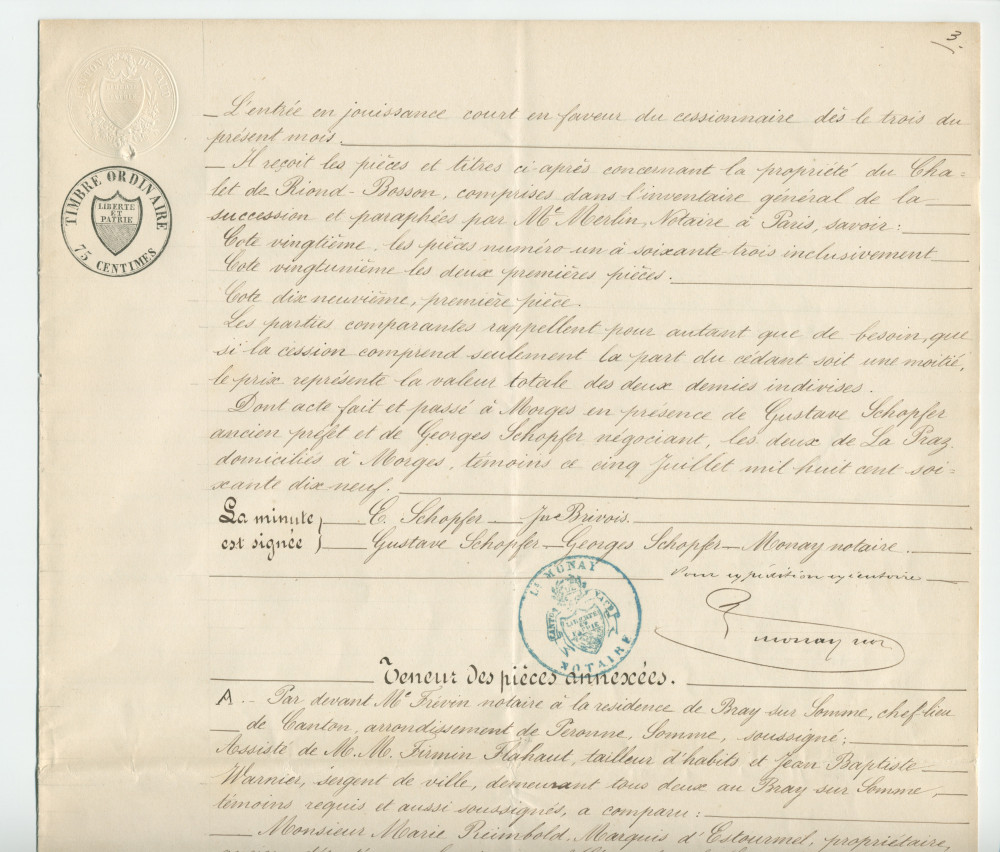 3.
TIMBRE ORDINAIRE
LIBERTÉ
ET
PATRIE
75 CENTIMES
L'entrée en jouissance court en faveur du cessionnaire dès le trois du
présent mois.
Il reçoit les pièces et titres ci-après concernant la propriété du Cha-
let de Riond-Bosson, comprises dans l'inventaire général de la
succession et paraphées par Me Merlin, Notaire à Paris, savoir:
Cote vingtième. les pièces numéro un à soixante trois inclusivement
Cote vingtunième les deux premières pièces.
Cote dix neuvième, première pièce.
Les parties comparantes rappellent pour autant que de besoin, que
si la cession comprend seulement la part du cédant soit une moitié,
le prix représente la valeur totale des deux demies indivises.
Dont acte fait et passé à Morges en présence de Gustave Schopfer
ancien préfet et de Georges Schopfer négociant, les deux de La Praz
domiciliés à Morges, témoins ce cinq Juillet mil huit cent soi-
xante dix neuf.
La minute
est signée
E. Schopfer — Jn Brivois.
Gustave Schopfer — Georges Schopfer — Monay notaire.
Pour expédition exécutoire
monay not
MONAY
CANTON VAUD
LIBERTÉ
ET
PATRIE
NOTAIRE
Teneur des pièces annexées.
A. - Par devant Me Frévin notaire à la résidence de Bray sur Somme, chef-lieu
de Canton, arrondissement de Peronne, Somme, soussigné;
Assisté de M. M. Firmin Flahaut, tailleur d'habits et Jean Baptiste
Warnier, sergent de ville, demeurant tous deux au Bray sur Somme,
témoins requis et aussi soussignés, a comparu:
Monsieur Marie Reimbold, Marquis d'Estourmel, propriétaire,